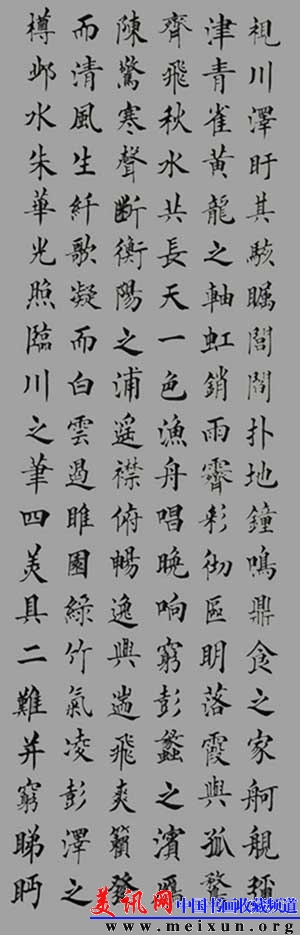 視川澤盱其駭矚閭閻扑地鐘鳴鼎食之家舸艦彌
津青雀黃龍之軸虹銷雨霽彩彻區明落霞與孤鶩
齊飛秋水共長天一色漁舟唱晚响窮彭蠡之濱
陳驚寒聲斷衡陽之浦遥襟俯暢逸興遄飛爽籟發
而清風生纤歌凝而白雲遏睢園綠竹氣凌彭澤之
樽邺水朱華光照臨川之筆四美具二難并窮睇眄
美讯网 中国书画收藏频道
www.meixun.org